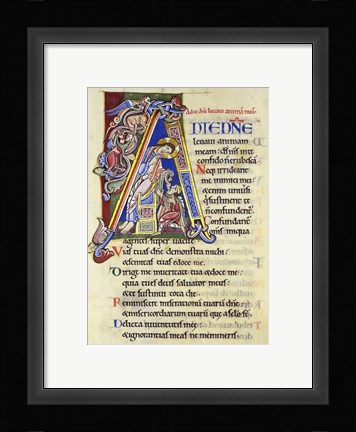 A
D TE DN̄E
leuaui animam
meam: dſ̄ mſ inte
confido n̄ erubeſcā
Neq; irrideant
me inimici mei
&enim uniuſi
qui ſuſtinent te
n̄ confundent̄.
Confundant̄
omnſ iniqua
agenteſ ſuper uacue
Viaſ tuaſ dn̄e demonſtra michi:
&ſemitaſ tuaſ edoce me.
Dirige me inueritate tua &doce me
quia tu eſ deuſ ſaluator meuſ:
&te ſuſtinui tota die.
Reminiſcere miſerationū tuarū dn̄e
&miſericordiarum tuarū que a ſc̄lo ſt̄
Delicta iuuentutiſ meę:
&ignorantiaſ meaſ ne memineriſ.